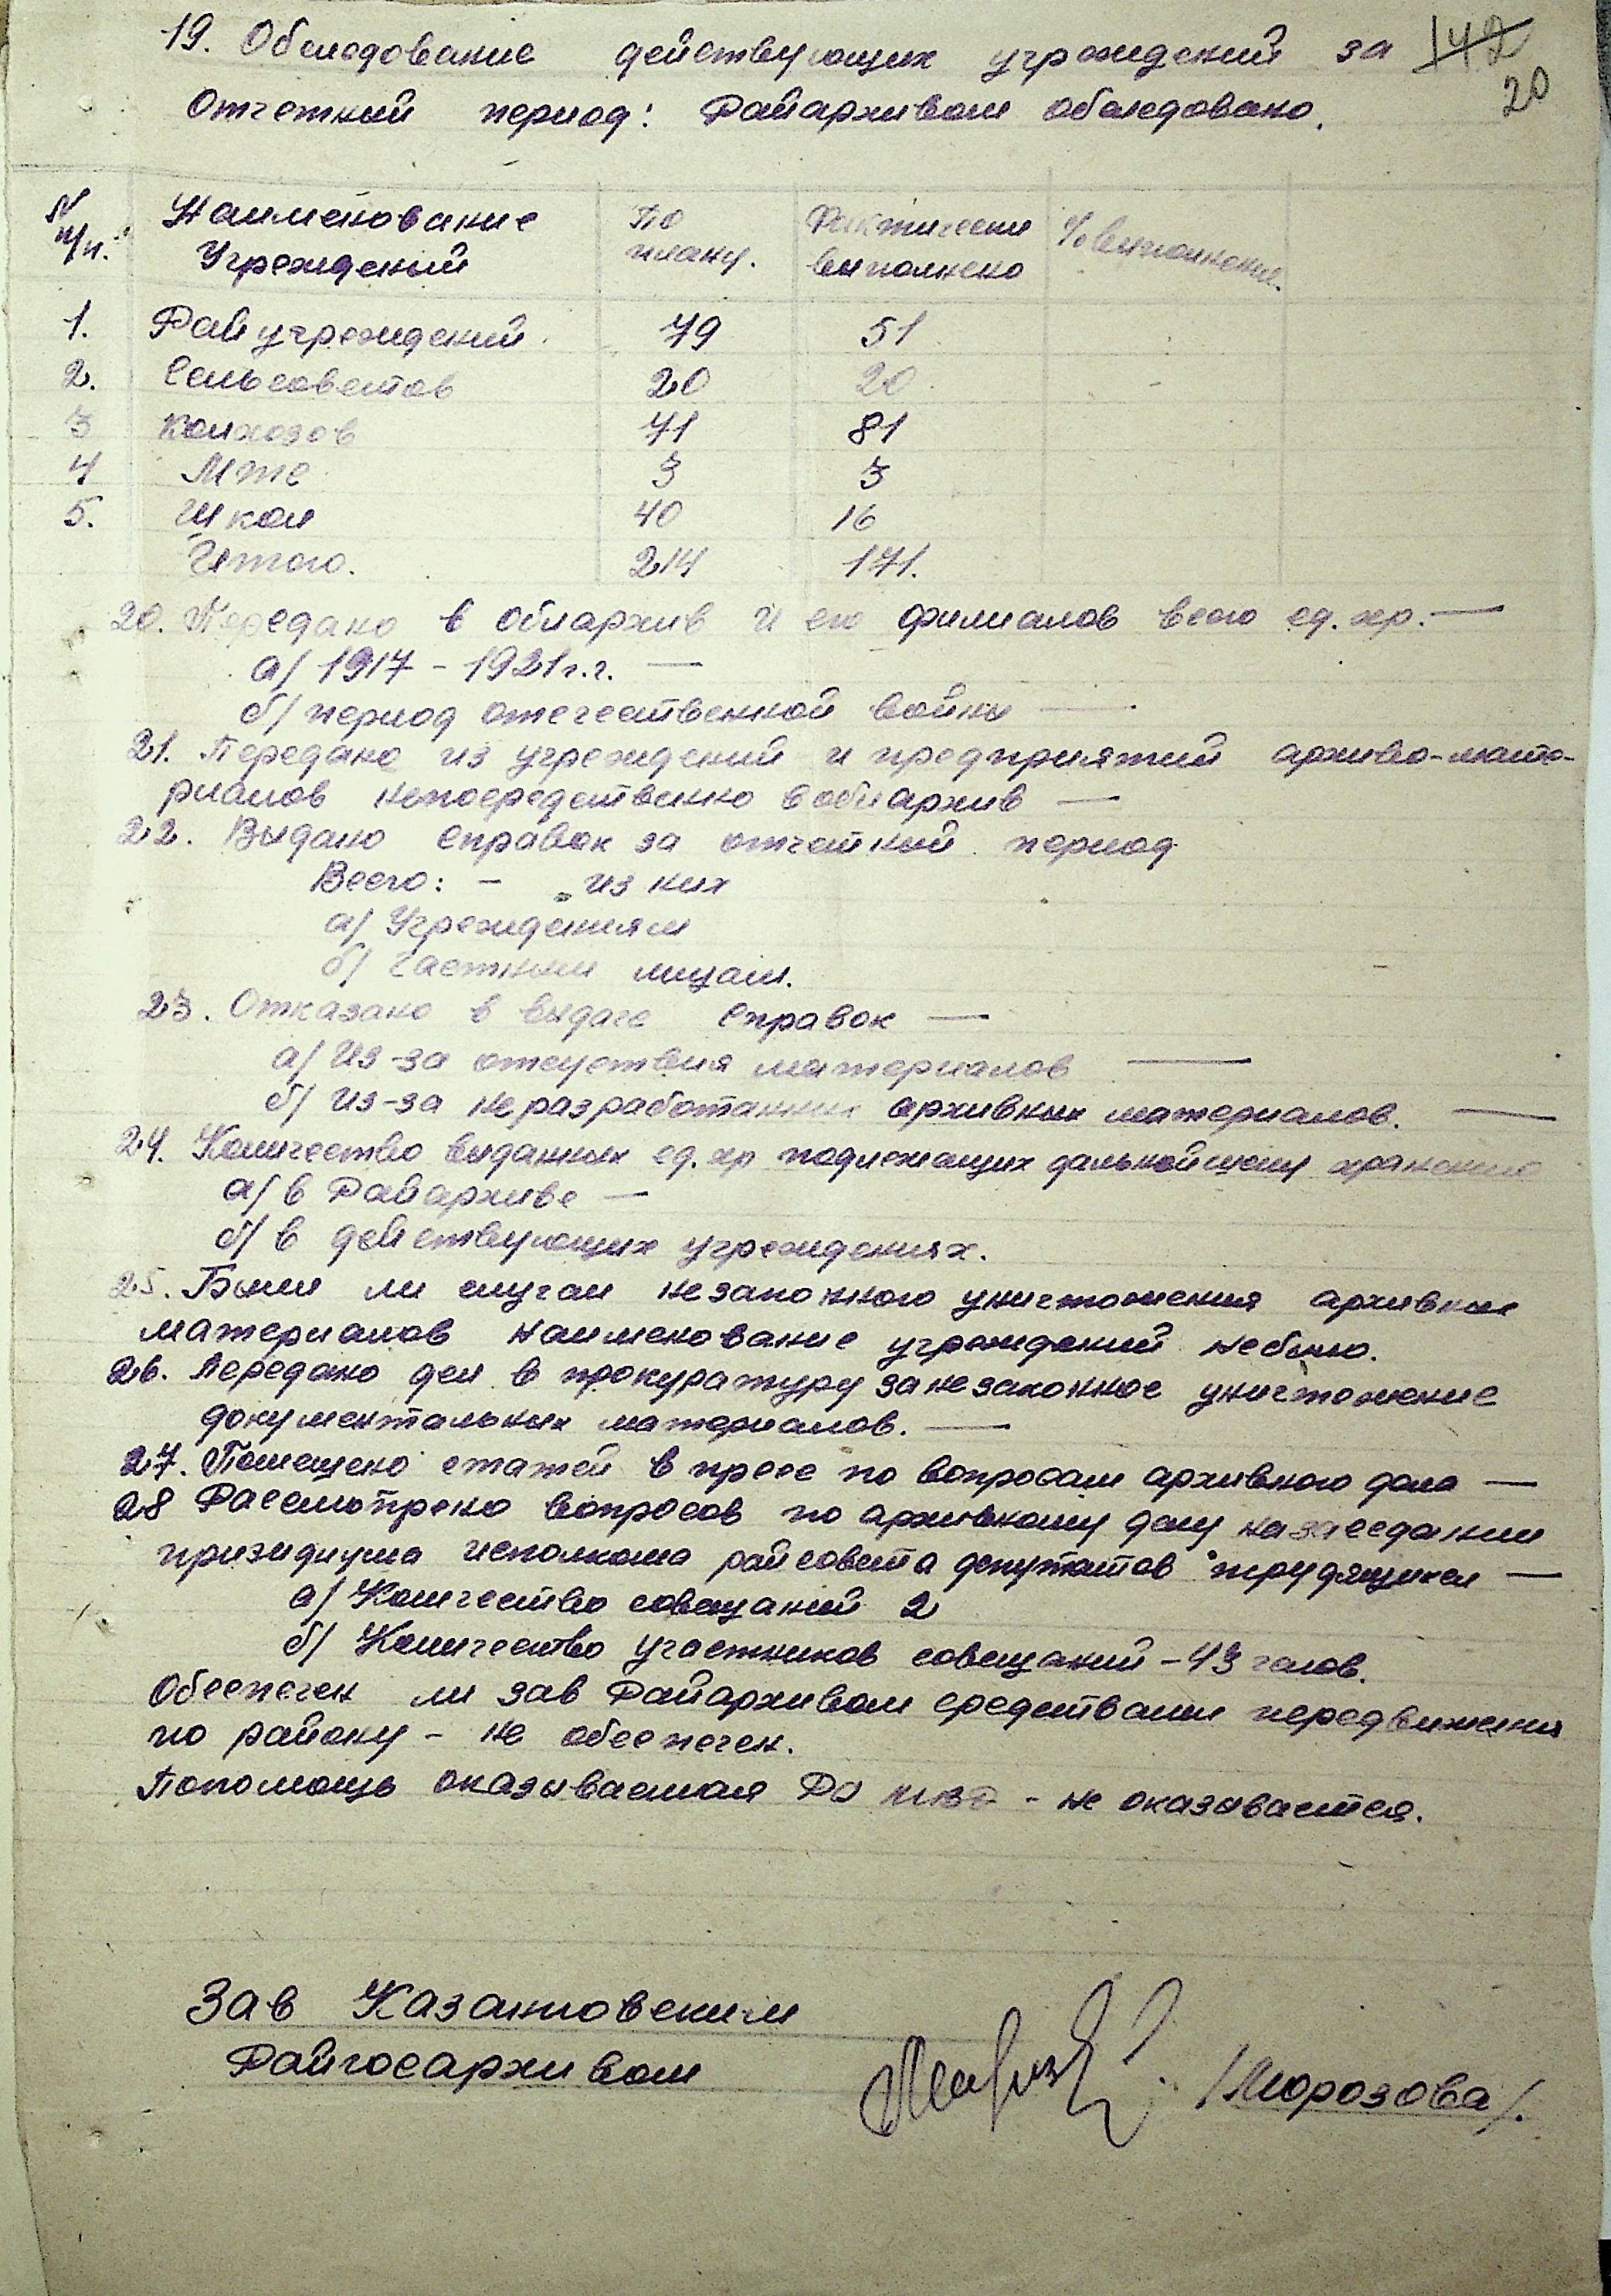 19. Обследование действующих учреждений за 142
20
Отчетный период: Райархивом обследовано.
N п/п. Наименование Учреждений По плану. Фактически выполнено % выполнения.
1. Райучреждений 79 51
2. Сельсоветов 20 20
3 Колхозов 71 81
4 Мтс 3 3
5. Школ 40 16
Итого. 214 171.
20. Передано в облархив и его филиалов всего ед. хр. —
а/ 1917 - 1921 г.г. —
б/ период отечественной войны —
21. Передано из учреждений и предприятий архивo-мате-
риалов непосредственно в облархив —
22. Выдано справок за отчетный период
Всего: - из них
а/ Учреждениям
б/ Частным лицам.
23. Отказано в выдаче справок —
а/ Из-за отсуствия материалов —
б/ Из-за неразработанных архивных материалов. —
24. Количество выданных ед. хр подлежащих дальнейшему хранению
а/ в Райархиве —
б/ в действующих учреждениях.
25. Были ли случаи незаконного уничтожения архивных
материалов наименование учреждений небыло.
26. Передано дел в прокуратуру за незаконное уничтожение
документальных материалов. —
27. Помещено статей в пресе по вопросам архивного дела —
28 Рассмотрено вопросов по архивному делу на заседании
призидиума исполкома райсовета депутатов трудящихся —
а/ Количество совещаний 2
б/ Количество участников совещаний - 43 челов.
Обеспечен ли зав Райархивом средствами передвижения
по району - не обеспечен.
Попомощь оказываемая РО МВД - не оказывается.
Зав Казанковским
Райгосархивом
/Морозова/.